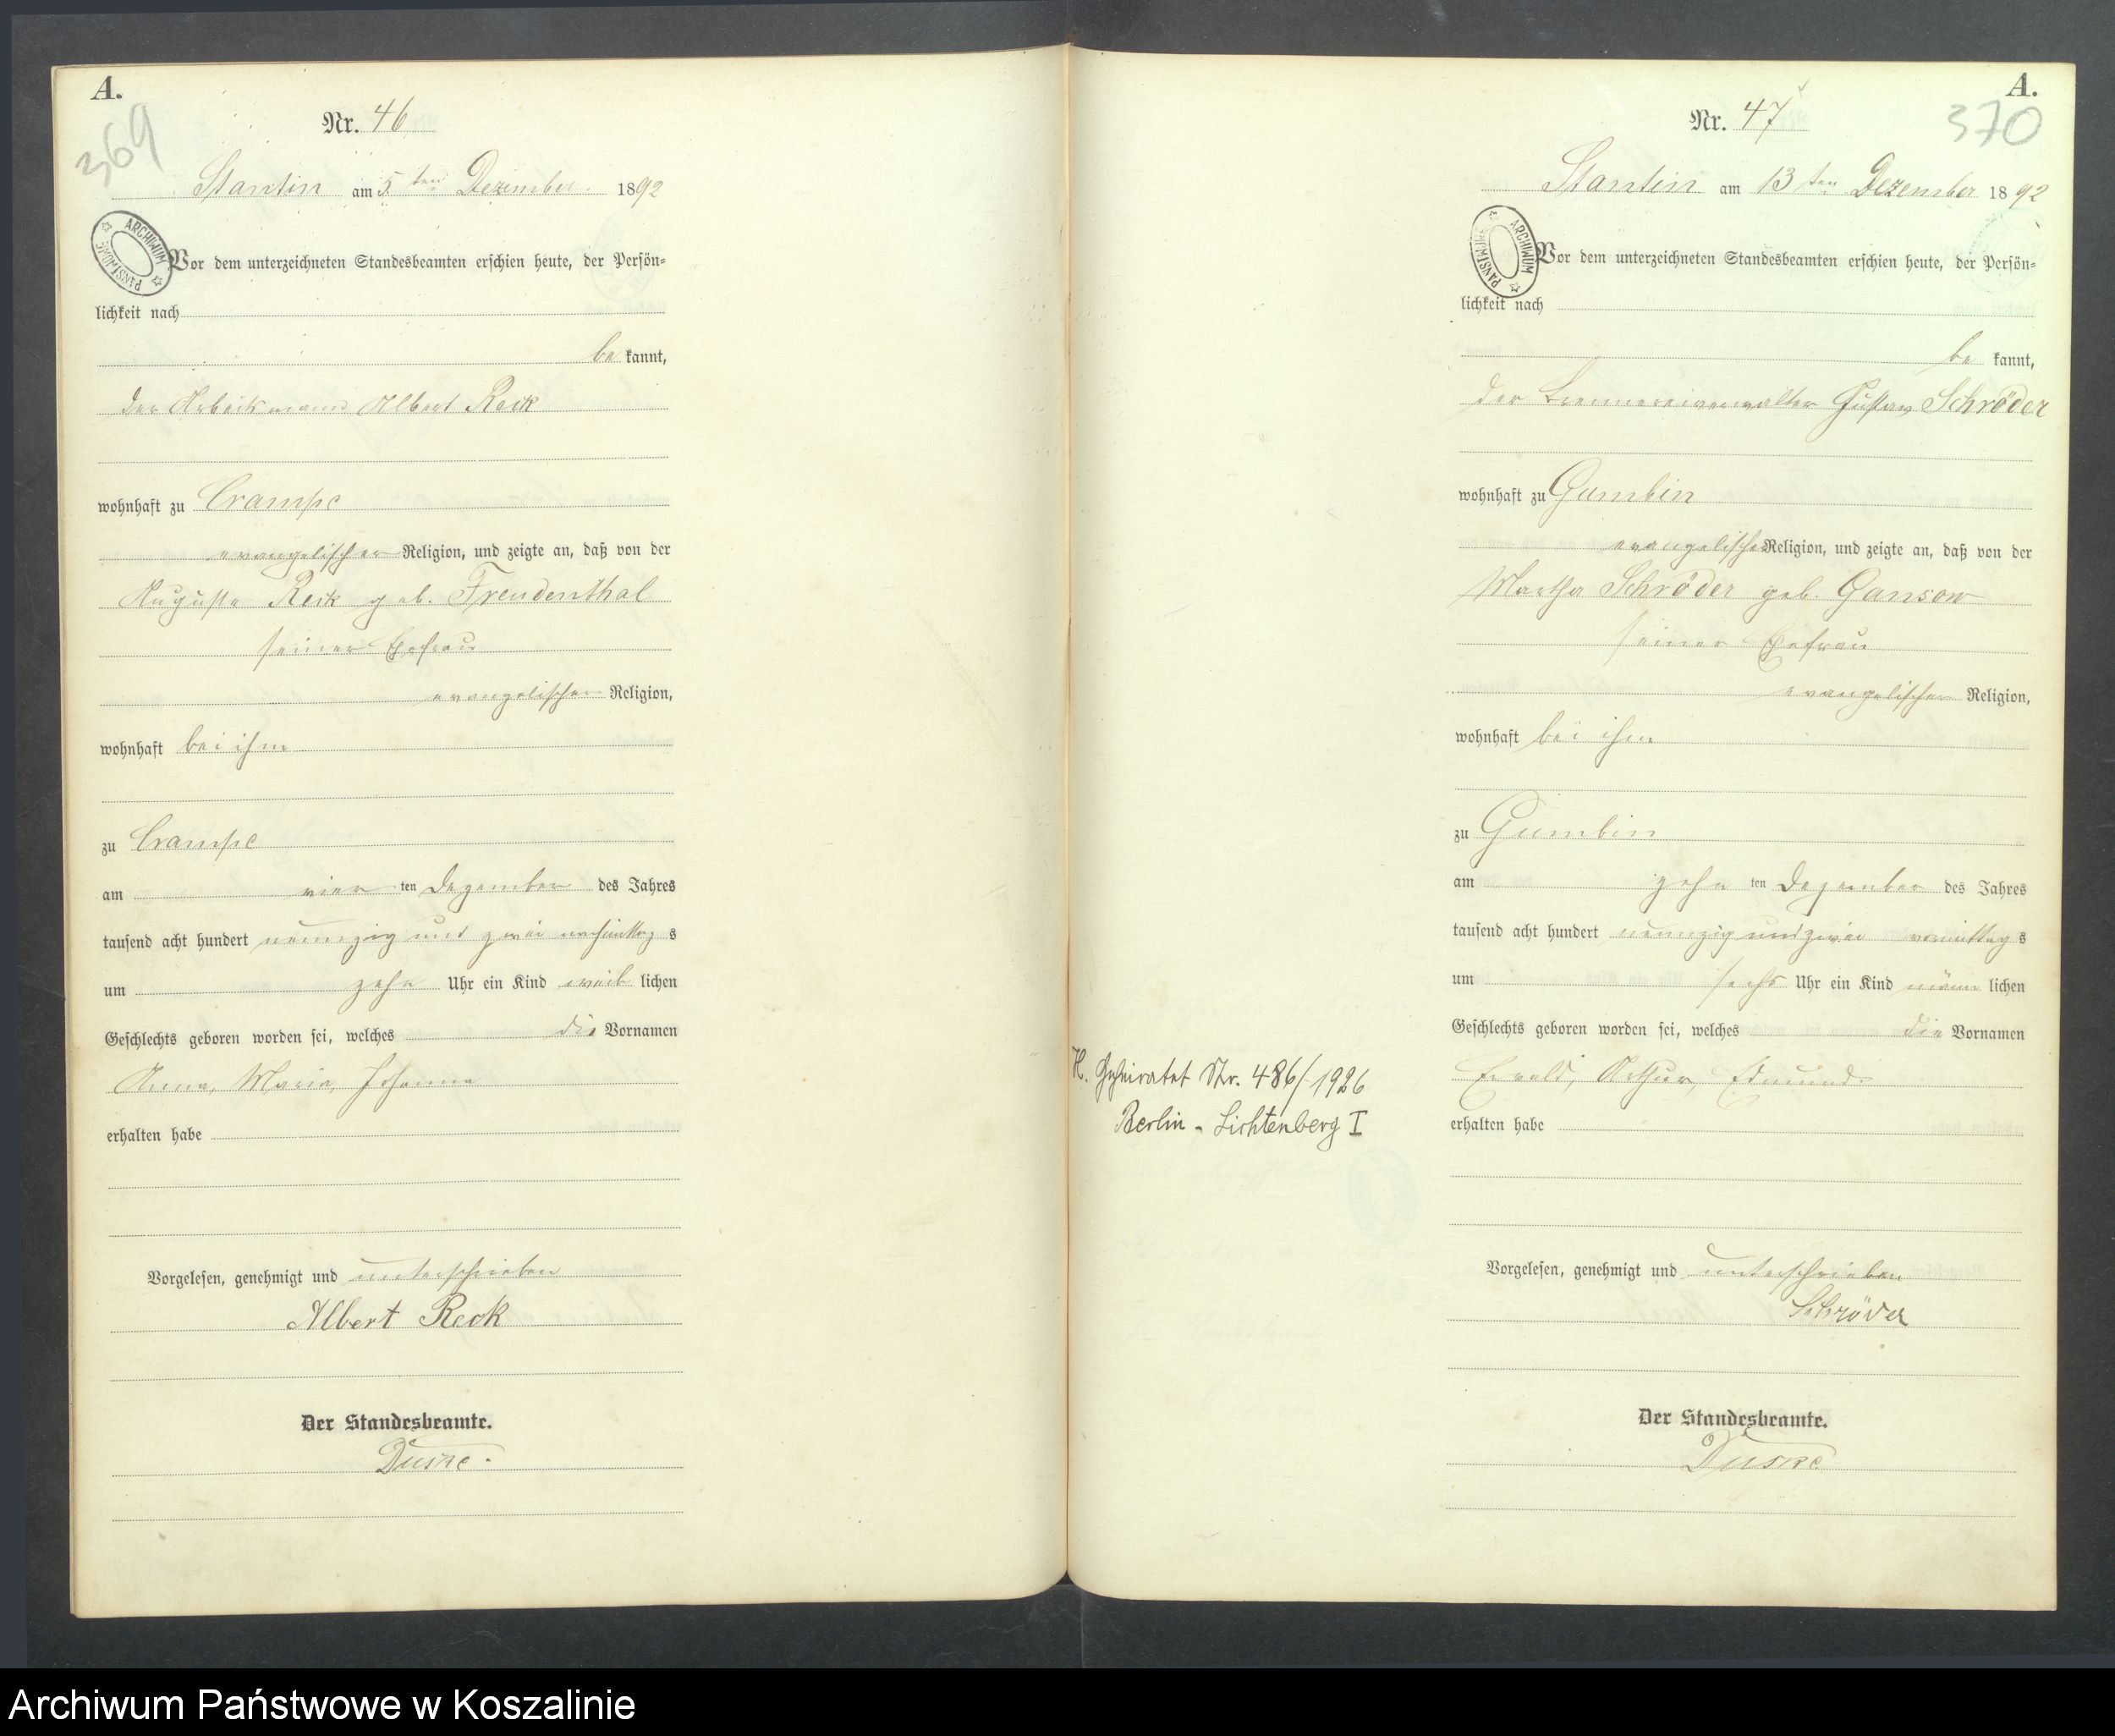 A.
369
Nr. 46
Stantin am 5 ten Dezember 1892
ARCHIWUM PAŃSTWOWE
Vor dem unterzeichneten Standesbeamten erschien heute, der Persön-
lichkeit nach
be kannt,
der Arbeitsmann Albert Reck
wohnhaft zu Crampe
evangelischer Religion, und zeigte an, daß von der
Auguste Reck geb. Freudenthal
seiner Ehefrau
evangelischer Religion,
wohnhaft bei ihm
zu Crampe
am vier ten Dezember des Jahres
tausend acht hundert neunzig und zwei nachmittag s
um zehn Uhr ein Kind weib lichen
Geschlechts geboren worden sei, welches die Vornamen
Anna, Maria, Johanna
erhalten habe
Vorgelesen, genehmigt und unterschrieben
Albert Reck
Der Standesbeamte.
Duske.
A.
370
Nr. 47
Stantin am 13 ten Dezember 1892
ARCHIWUM PAŃSTWOWE
Vor dem unterzeichneten Standesbeamten erschien heute, der Persön-
lichkeit nach
be kannt,
der Brennereiverwalter Gustav Schröder
wohnhaft zu Gumbin
evangelischer Religion, und zeigte an, daß von der
Martha Schröder geb. Gansow
seiner Ehefrau
evangelischer Religion,
wohnhaft bei ihm
zu Gumbin
am zehn ten Dezember des Jahres
tausend acht hundert neunzig und zwei vormittag s
um sechs Uhr ein Kind männ lichen
Geschlechts geboren worden sei, welches die Vornamen
Ewald, Arthur, Edmund
erhalten habe
H. Geheiratet Nr. 486/1926
Berlin - Lichtenberg I
Vorgelesen, genehmigt und unterschrieben
Schröder
Der Standesbeamte.
Duske
Archiwum Państwowe w Koszalinie